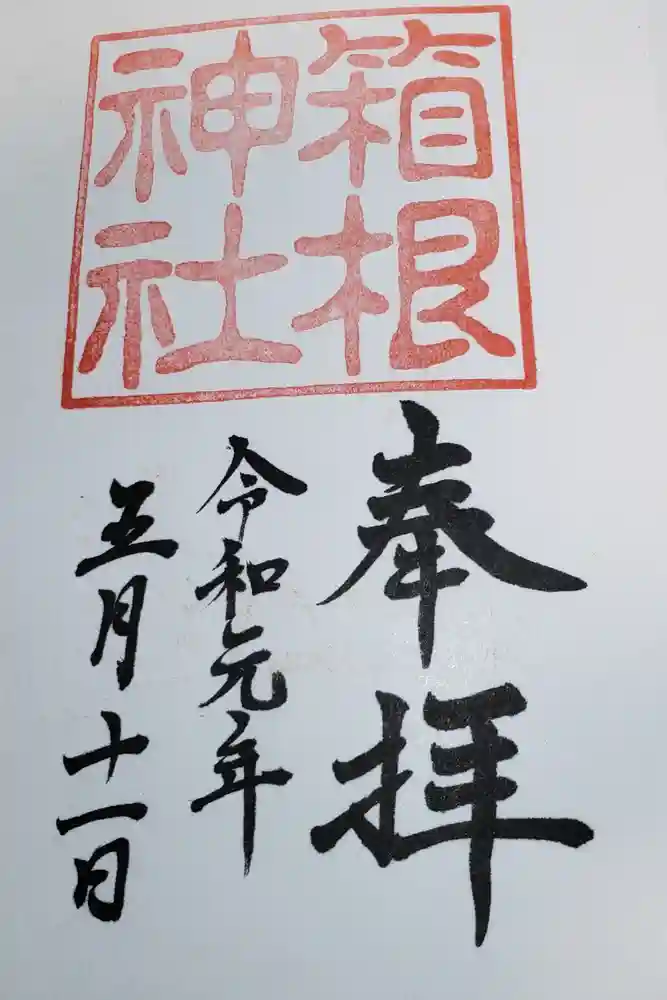 箱根
神社
奉拝
令和元年
五月十一日